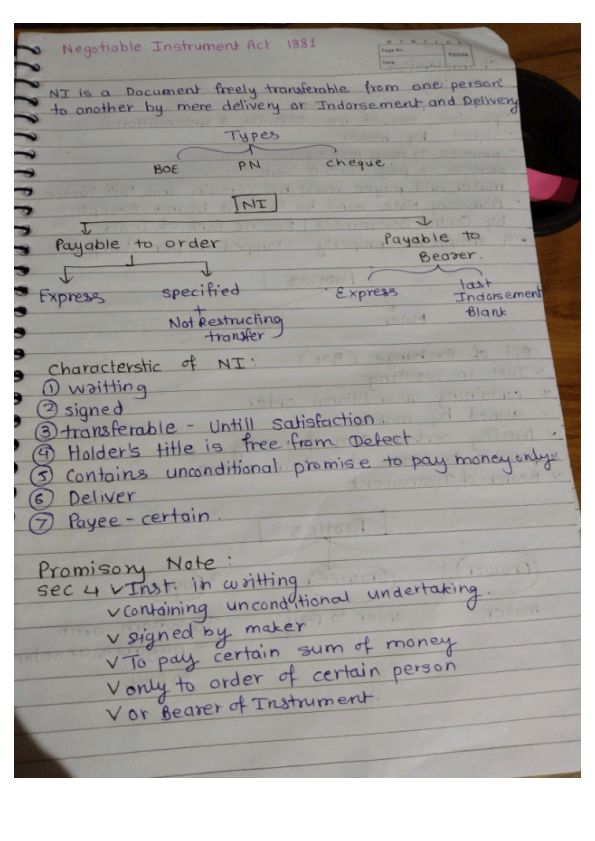 Negotiable Instrument Act 1881
Page No.
Date
YOUVA
NI is a Document freely transferable from one person
to another by mere delivery or Indorsement and Delivery
Types
BOE PN cheque.
NI
Payable to order Payable to
Bearer.
Express specified Express last
Indorsement
Blank.
+
Not Restructing
transfer
Characterstic of NI :
① waitting
② signed
③ transferable - Untill satisfaction
④ Holder's title is free from Defect.
⑤ Contains unconditional promise to pay money only.
⑥ Deliver
⑦ Payee - certain.
Promisory Note :
Sec 4 ✓ Inst. in writting
✓ containing unconditional undertaking.
✓ signed by maker
✓ To pay certain sum of money
✓ only to order of certain person
✓ or Bearer of Instrument.